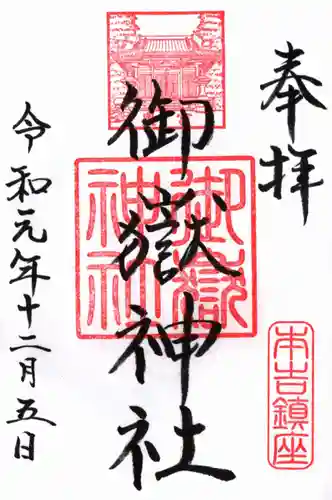 奉拝
本吉鎮座
御嶽神社
御嶽神社
令和元年十二月五日